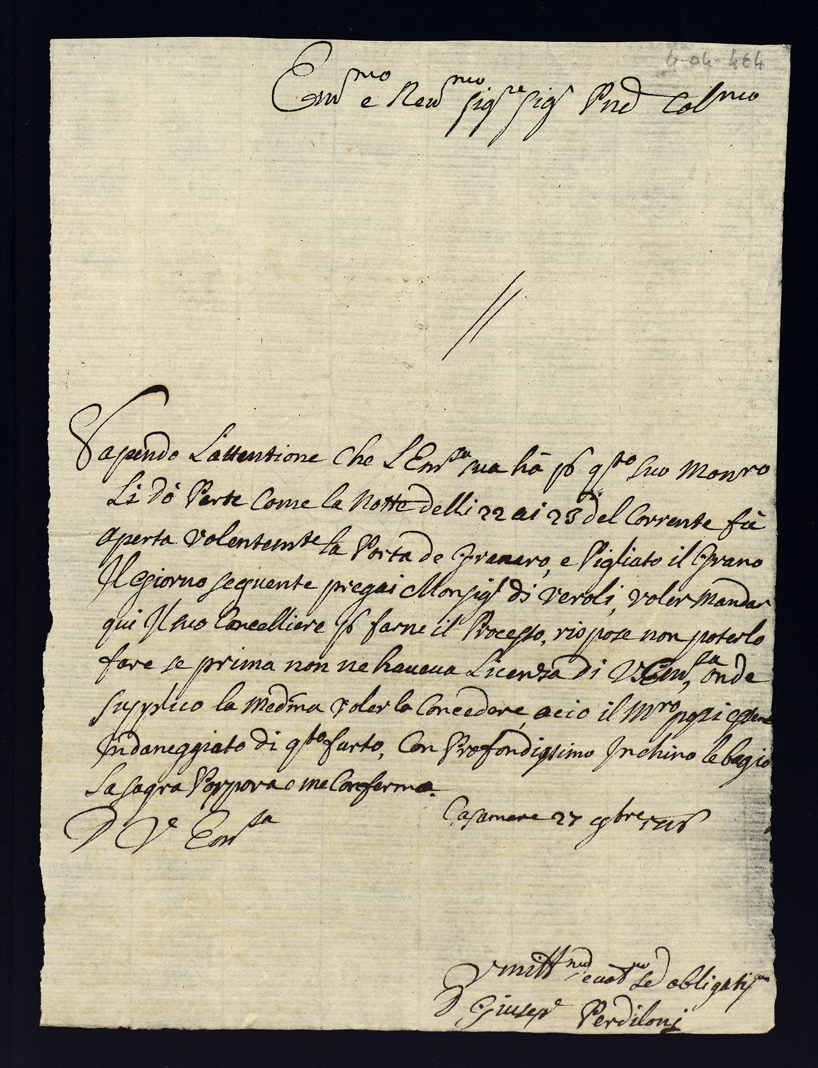 4-04-464
Em.mo e Reu.mo Sig.re Sig.r Pne Col.mo
Sapendo L'attentione che L'Em.za sua hà p q.to suo Monro
Li dò Parte Come la Notte delli 22 ai 23 del Corrente fù
aperta volentemte la Porta de Granaro, e Pigliato il Grano
Il Giorno seguente pregai Monsig.r di Veroli, voler Mandar
qui Il suo Cancelliere p farne il Processo, rispose non poterlo
fare se prima non ne haueua Licenza di V Em.za, onde
supplico la Medma voler la Concedere, acio il Mro possi essere
Indaneggiato di q.to furto, Con Profondissimo Inchino le bagio
la sagra Porpora e me Confermo.
D V.e Em.za
Casamare 27 9bre 1716
Vmiliss.mo Deuot.mo Se obligatis.mo
D Giusep.e Perdiloni